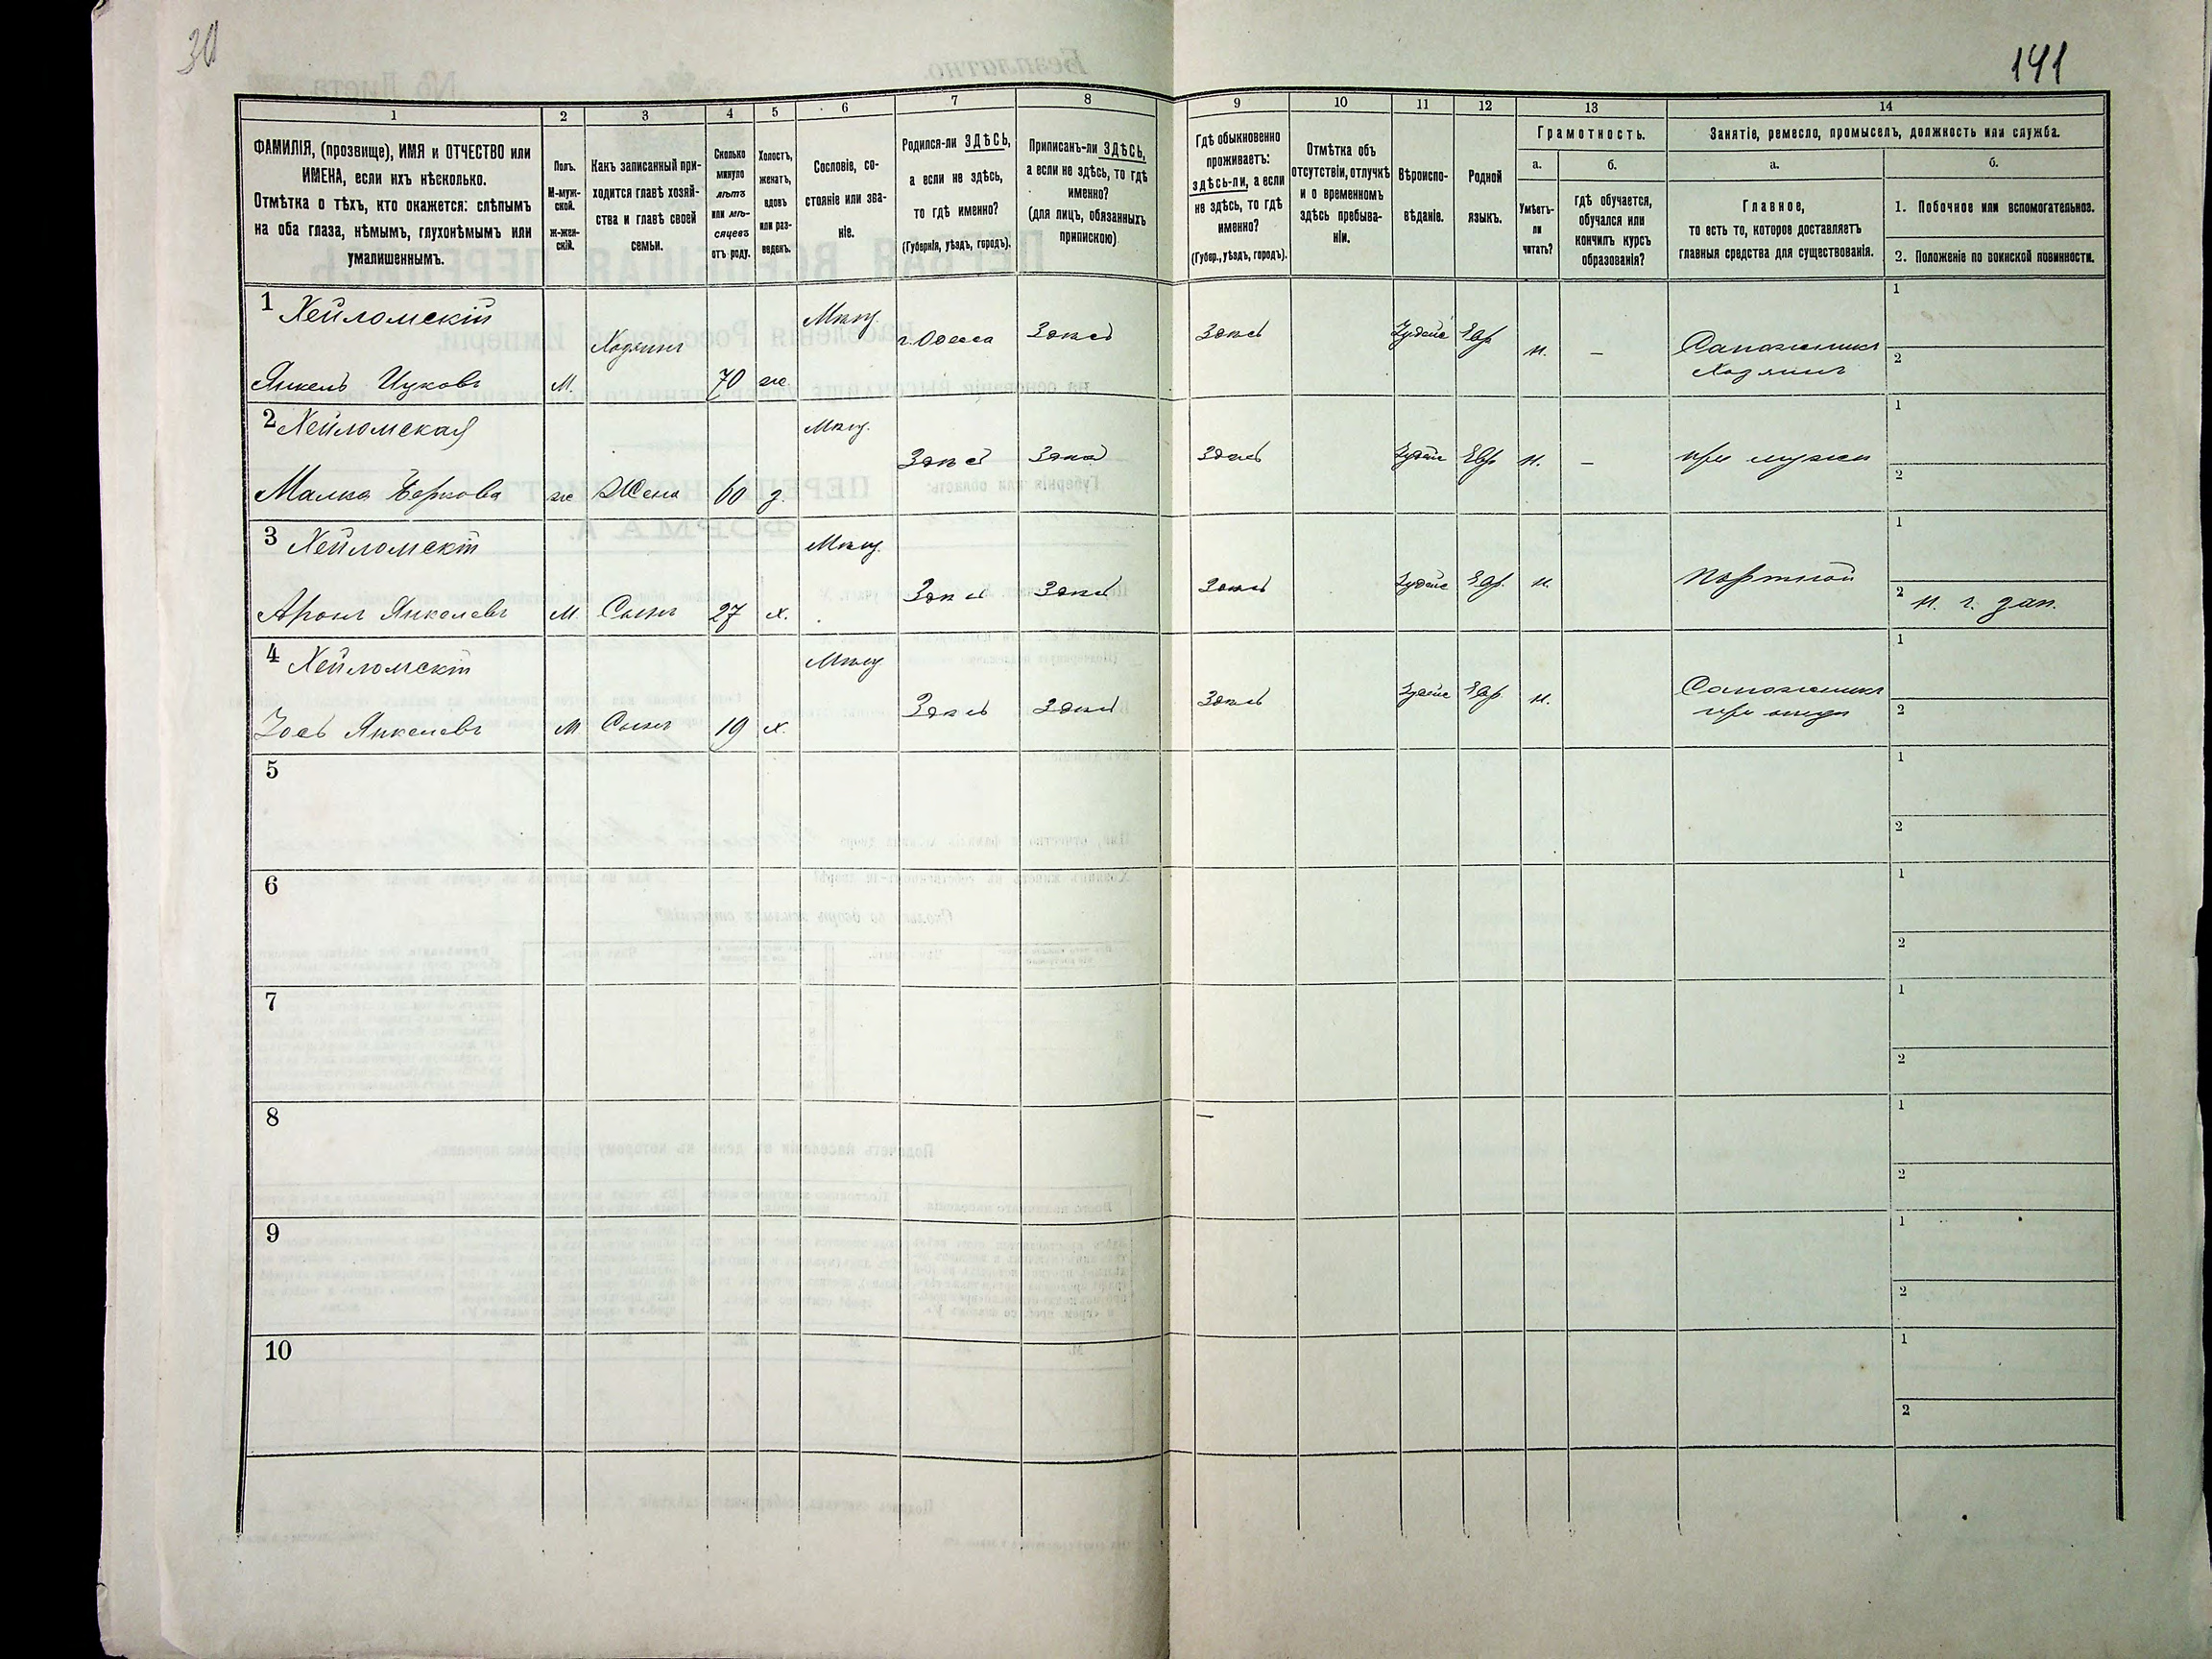 30
141
1
2
3
4
5
6
7
8
9
10
11
12
13
14
ФАМИЛІЯ, (прозвище), ИМЯ и ОТЧЕСТВО или
ИМЕНА, если ихъ нѣсколько.
Отмѣтка о тѣхъ, кто окажется: слѣпымъ
на оба глаза, нѣмымъ, глухонѣмымъ или
умалишеннымъ.
Полъ.
М-муж-
ской.
ж-жен-
скій.
Какъ записанный при-
ходится главѣ хозяй-
ства и главѣ своей
семьи.
Сколько
минуло
лѣтъ
или мѣ-
сяцевъ
отъ роду.
Холостъ,
женатъ,
вдовъ
или раз-
веденъ.
Сословіе, со-
стояніе или зва-
ніе.
Родился-ли ЗДѢСЬ,
а если не здѣсь,
то гдѣ именно?
(Губернія, уѣздъ, городъ).
Приписанъ-ли ЗДѢСЬ,
а если не здѣсь, то гдѣ
именно?
(для лицъ, обязанныхъ
припискою)
Гдѣ обыкновенно
проживаетъ:
здѣсь-ли, а если
не здѣсь, то гдѣ
именно?
(Губер., уѣздъ, городъ).
Отмѣтка объ
отсутствіи, отлучкѣ
и о временномъ
здѣсь пребыва-
ніи.
Вѣроиспо-
вѣданіе.
Родной
языкъ.
Грамотность.
а.
Умѣетъ-
ли
читать?
б.
гдѣ обучается,
обучался или
кончилъ курсъ
образованія?
Занятіе, ремесло, промыселъ, должность или служба.
а.
Главное,
то есть то, которое доставляетъ
главныя средства для существованія.
б.
1. Побочное или вспомогательное.
2. Положеніе по воинской повинности.
1 Хейломскій
Янкель Ицковъ
М.
Хозяинъ
70
ж.
Мѣщ.
г. Одесса
Здѣсь
Здѣсь
Іудейс
Евр
н.
—
Сапожникъ
Хозяинъ
1
2
2 Хейломская
Малка Беркова
ж
Жена
60
з.
Мѣщ.
Здѣсь
Здѣсь
Здѣсь
Іудейс
Евр
н.
—
при мужѣ
1
2
3 Хейломскій
Аронъ Янкелевъ
М.
Сынъ
27
х.
Мѣщ.
Здѣсь
Здѣсь
Здѣсь
Іудейс
Евр.
н.
портной
1
2 н. г. зап.
4 Хейломскій
Іось Янкелевъ
М
Сынъ
19
х.
Мѣщ
Здѣсь
Здѣсь
Здѣсь
Іудейс
Евр
н.
Сапожникъ
при отцѣ
1
2
5
1
2
6
1
2
7
1
2
8
—
1
2
9
1
2
10
1
2